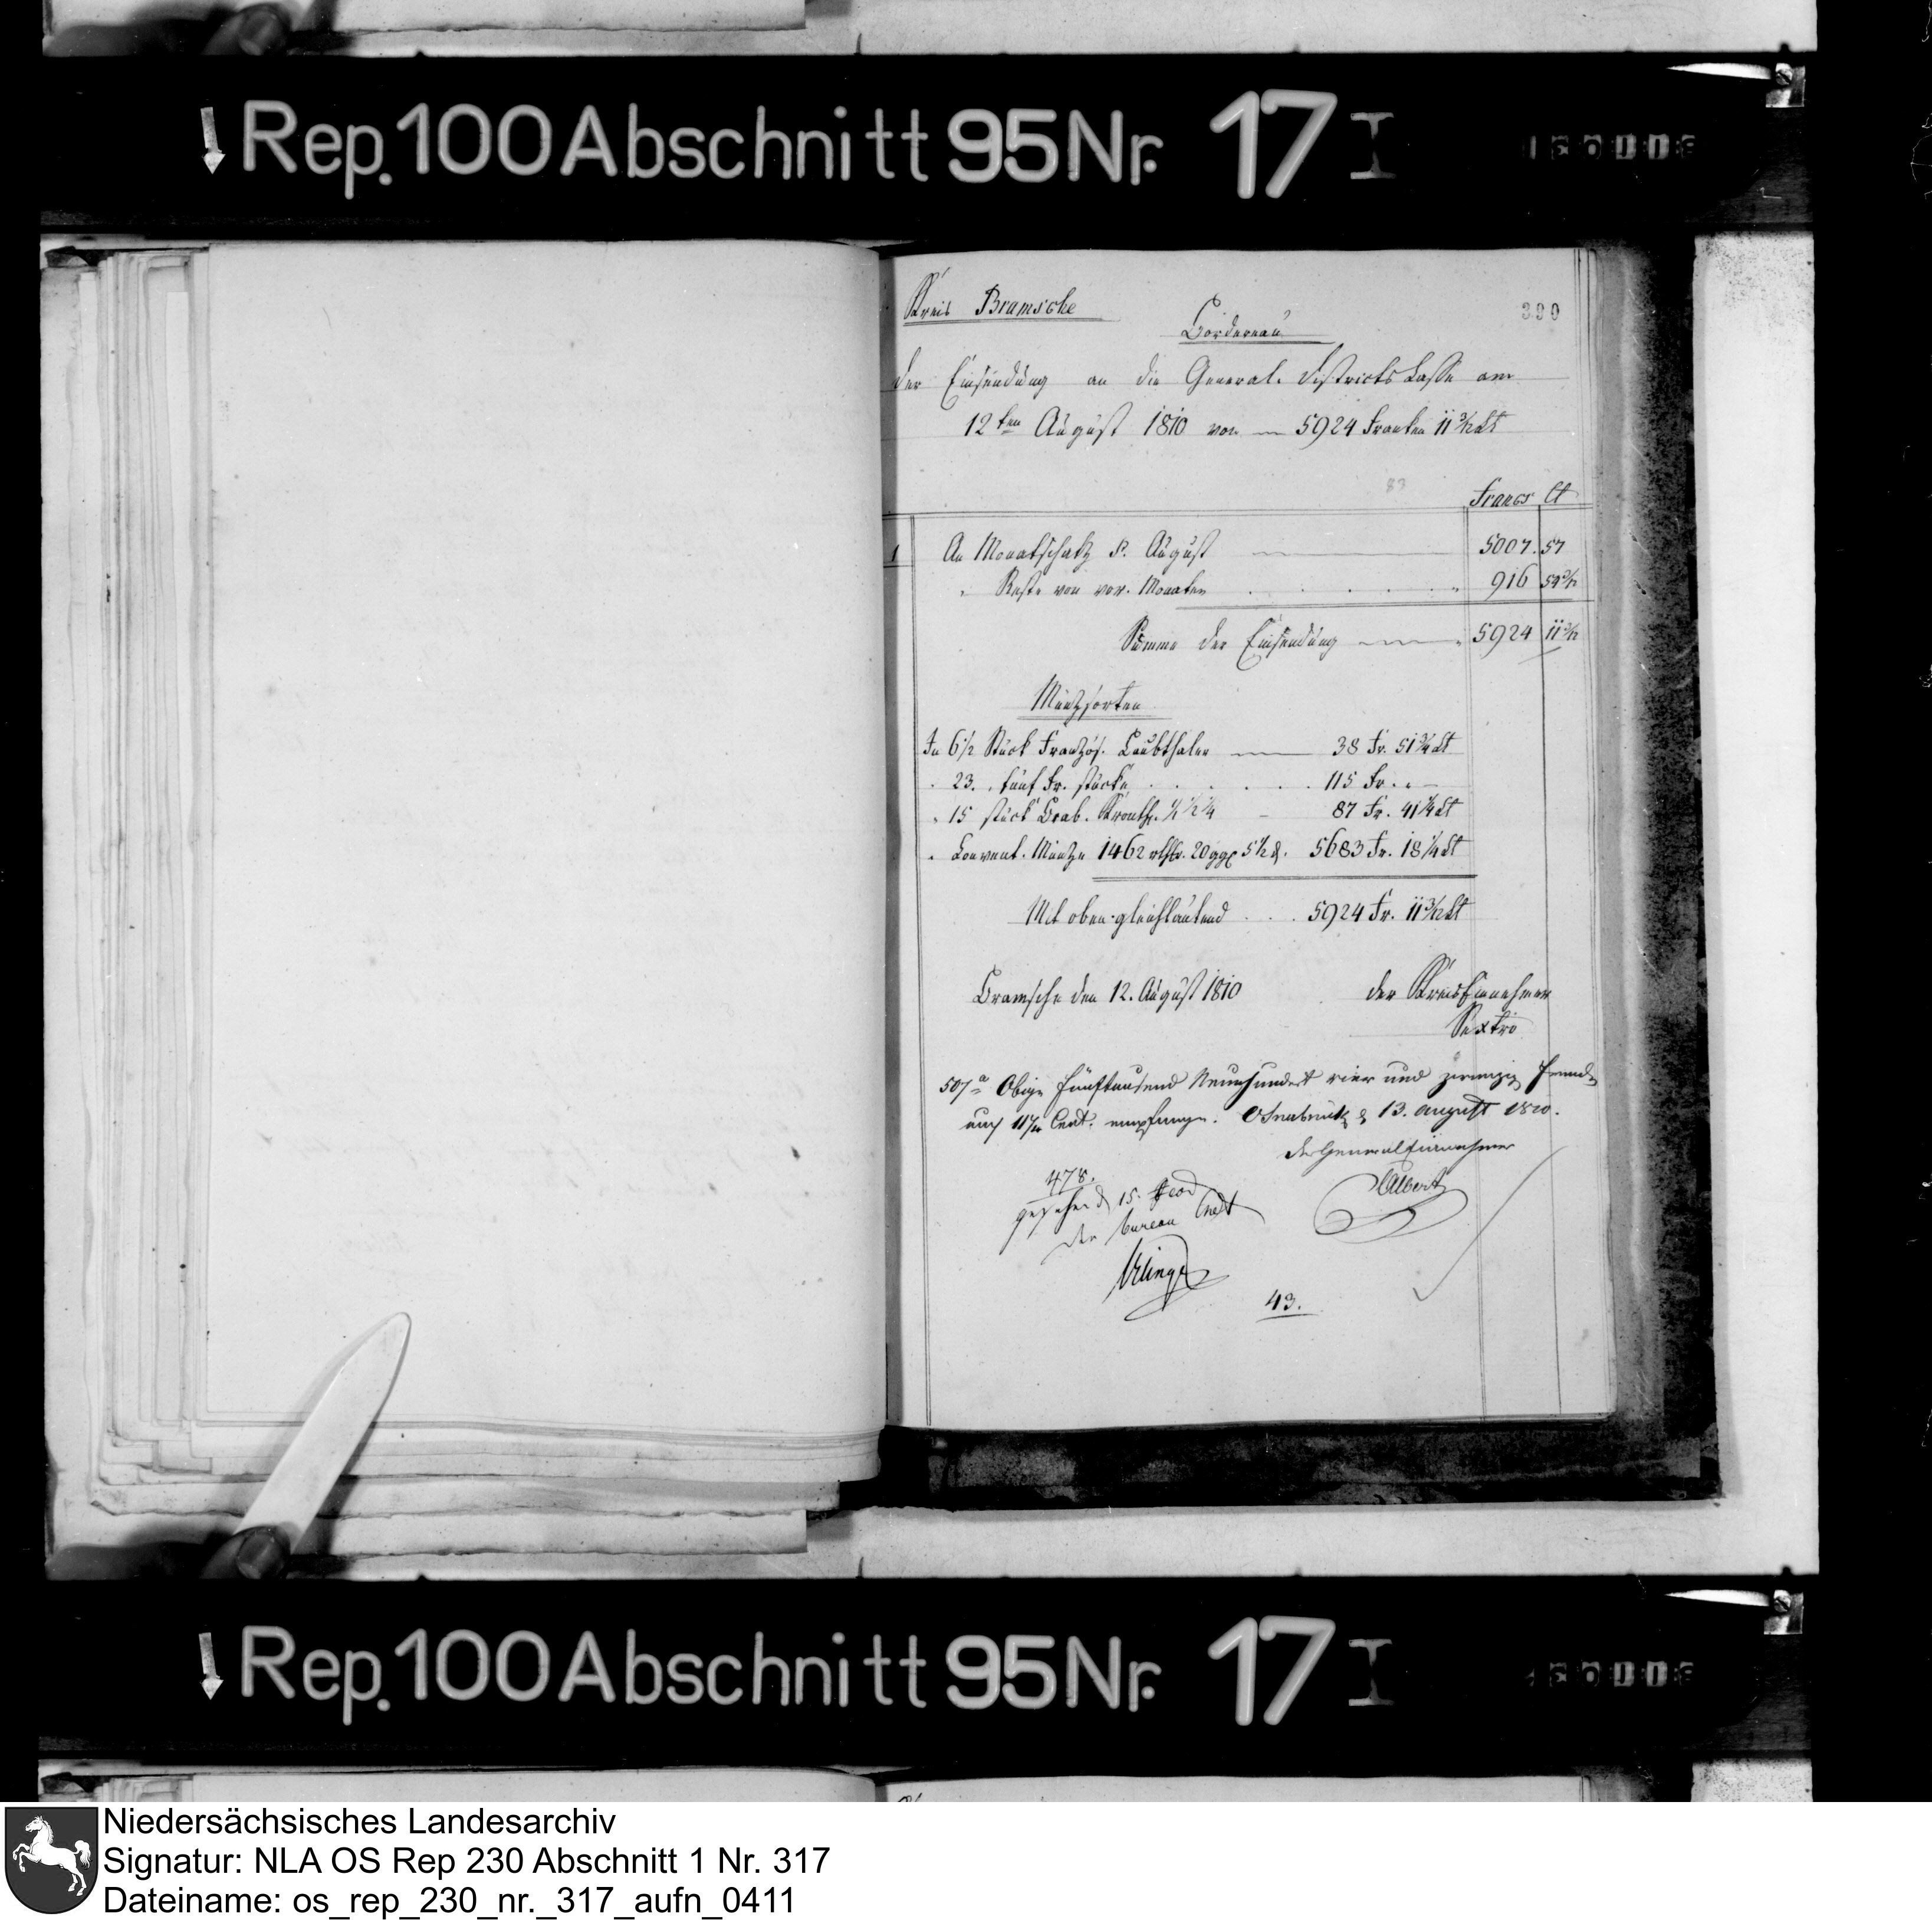 Rep. 100 Abschnitt 95 Nr. 17 I
Kreis Bramsche
390
Bordereau
der Einsendung an die General. Districts Casse am
12ten August 1810 von 5924 Franken 11 3/12 Ct
83
Francs Ct
1 An Monatschatz p. August 5007. 57
" Reste von vor. Monaten 916 54 3/12
Summe der Einsendung 5924 11 3/12
Müntzsorten
In 6 1/2 Stück Französ. Laubthaler 38 Fr. 51 3/4 Ct
" 23. " fünf Fr. stücke 115 Fr. " —
" 15 stück Brab. Kronthlr. 1/1 1/2 1/4 87 Fr. 41 1/4 Ct
" Convent. Müntze 1462 rthlr. 20 ggr 5 1/2 d. 5683 Fr. 18 1/4 Ct
Mit oben gleichlautend 5924 Fr. 11 3/12 Ct
Bramsche den 12. August 1810
der KreisEinnehmer
Sextro
507 a Obige fünftausend Neunhundert vier und zwanzig Franc
und 11 3/12 Cent. empfangen. Osnabrück d 13. August 1810.
der GeneralEinnehmer
Albert
478.
gesehen d 15.
der bureau Chef
43.
Rep. 100 Abschnitt 95 Nr. 17 I
Niedersächsisches Landesarchiv
Signatur: NLA OS Rep 230 Abschnitt 1 Nr. 317
Dateiname: os_rep_230_nr._317_aufn_0411